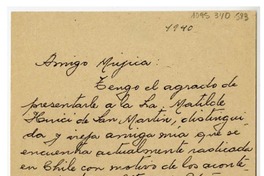 1940
Amigo Mujica:
Tengo el agrado de
presentarle a la Sra. Matilde
de San Martin, distingui
da y vieja amiga mia que se
encuentra actualmente radicada
en Chile con motivo de los aconte-